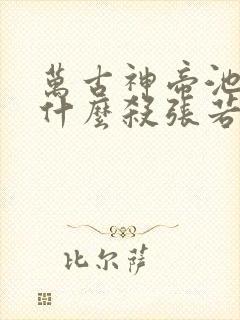 萬古神帝池
什麼殺張若
比尔萨